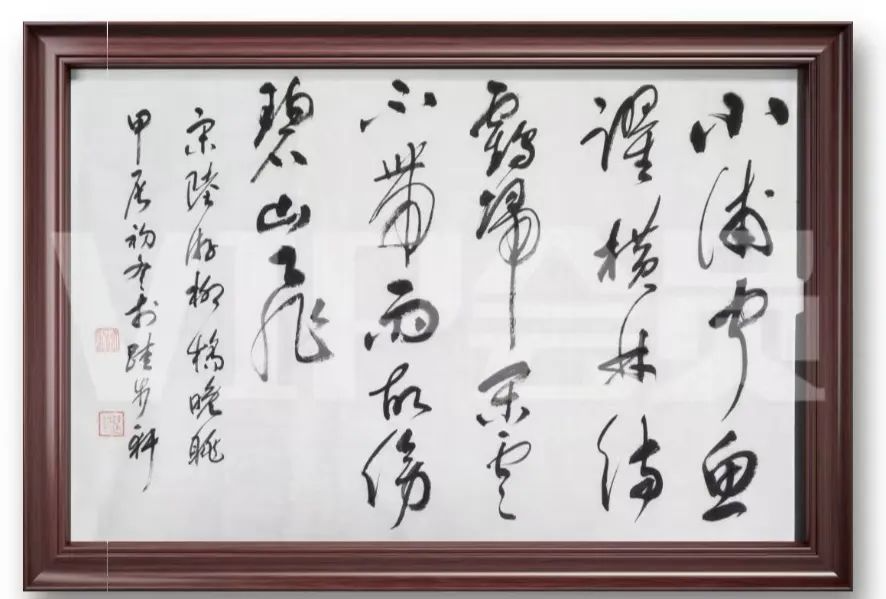 小浦聞魚
躍橫林待
鶴歸閑雲
不帶雨故傍
碧山飛
宋陸游柳橋晚眺
甲辰初冬於跬步軒
VIP会员